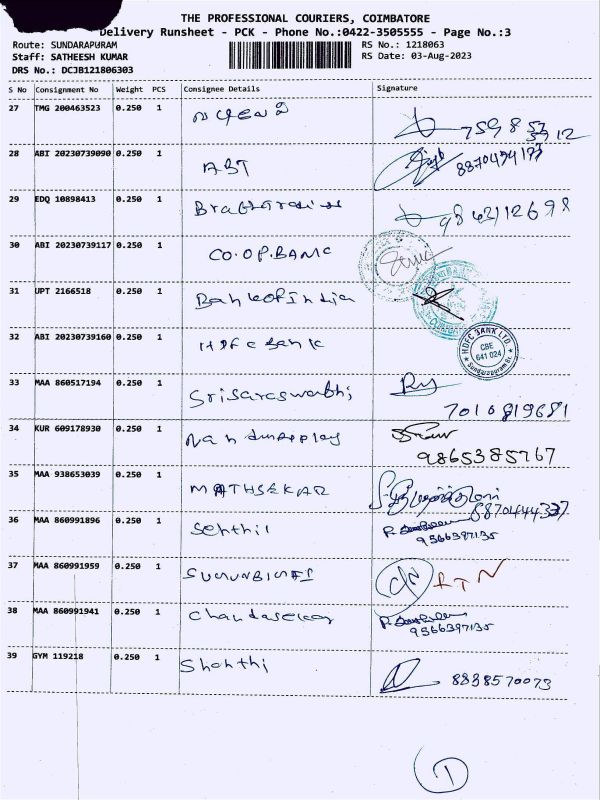 THE PROFESSIONAL COURIERS, COIMBATORE
Delivery Runsheet - PCK - Phone No.:0422-3505555 - Page No.:3
Route: SUNDARAPURAM
RS No.: 1218063
Staff: SATHEESH KUMAR
RS Date: 03-Aug-2023
DRS No.: DCJB121806303
S No Consignment No Weight PCS Consignee Details Signature
27 TMG 200463523 0.250 1
28 ABI 20230739090 0.250 1 ABT 8870474177
29 EDQ 10898413 0.250 1 9843112698
30 ABI 20230739117 0.250 1 CO.OP.BANC
31 UPT 2166518 0.250 1 Bankofindia
32 ABI 20230739160 0.250 1 HDFC Bank
HDFC BANK LTD.
CBE
641 024
Sundarapuram Br.
33 MAA 860517194 0.250 1 Srisaraswathi
7010819681
34 KUR 609178930 0.250 1
9865385767
35 MAA 938653039 0.250 1 MATHSEKAR
36 MAA 860991896 0.250 1 Senthil
9566397135
37 MAA 860991959 0.250 1 RTN
38 MAA 860991941 0.250 1 Chandasekar
9566397135
39 GYM 119218 0.250 1 Shanthi 8838570073
1